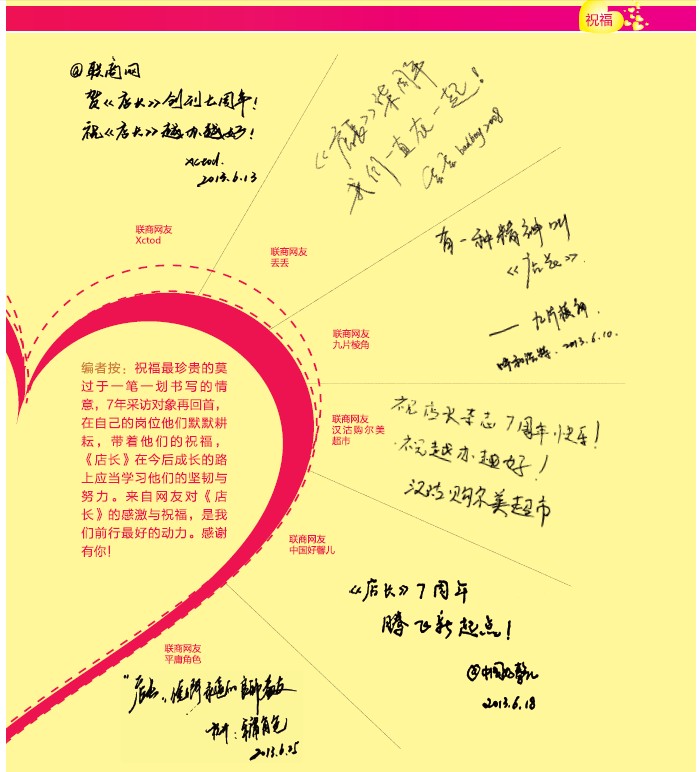 祝福
@联商网
贺《店长》创刊七周年!
祝《店长》越办越好!
xctod.
2013.6.13
《店长》柒周年
我们一直在一起!
丢丢 badboy2008
联商网友
Xctod
联商网友
丢丢
有一种精神叫
《店长》.
—— 九片棱角
2013.6.10.
联商网友
九片棱角
编者按：祝福最珍贵的莫
过于一笔一划书写的情
意，7年采访对象再回首，
在自己的岗位他们默默耕
耘，带着他们的祝福，
《店长》在今后成长的路
上应当学习他们的坚韧与
努力。来自网友对《店
长》的感激与祝福，是我
们前行最好的动力。感谢
有你!
联商网友
汉沽购尔美
超市
祝店长杂志7周年快乐!
祝越办越好!
汉沽购尔美超市
联商网友
中国好馨儿
《店长》7周年
腾飞新起点!
@中国好馨儿
2013.6.18
联商网友
平庸角色
"店长"
角色
2013.6.25